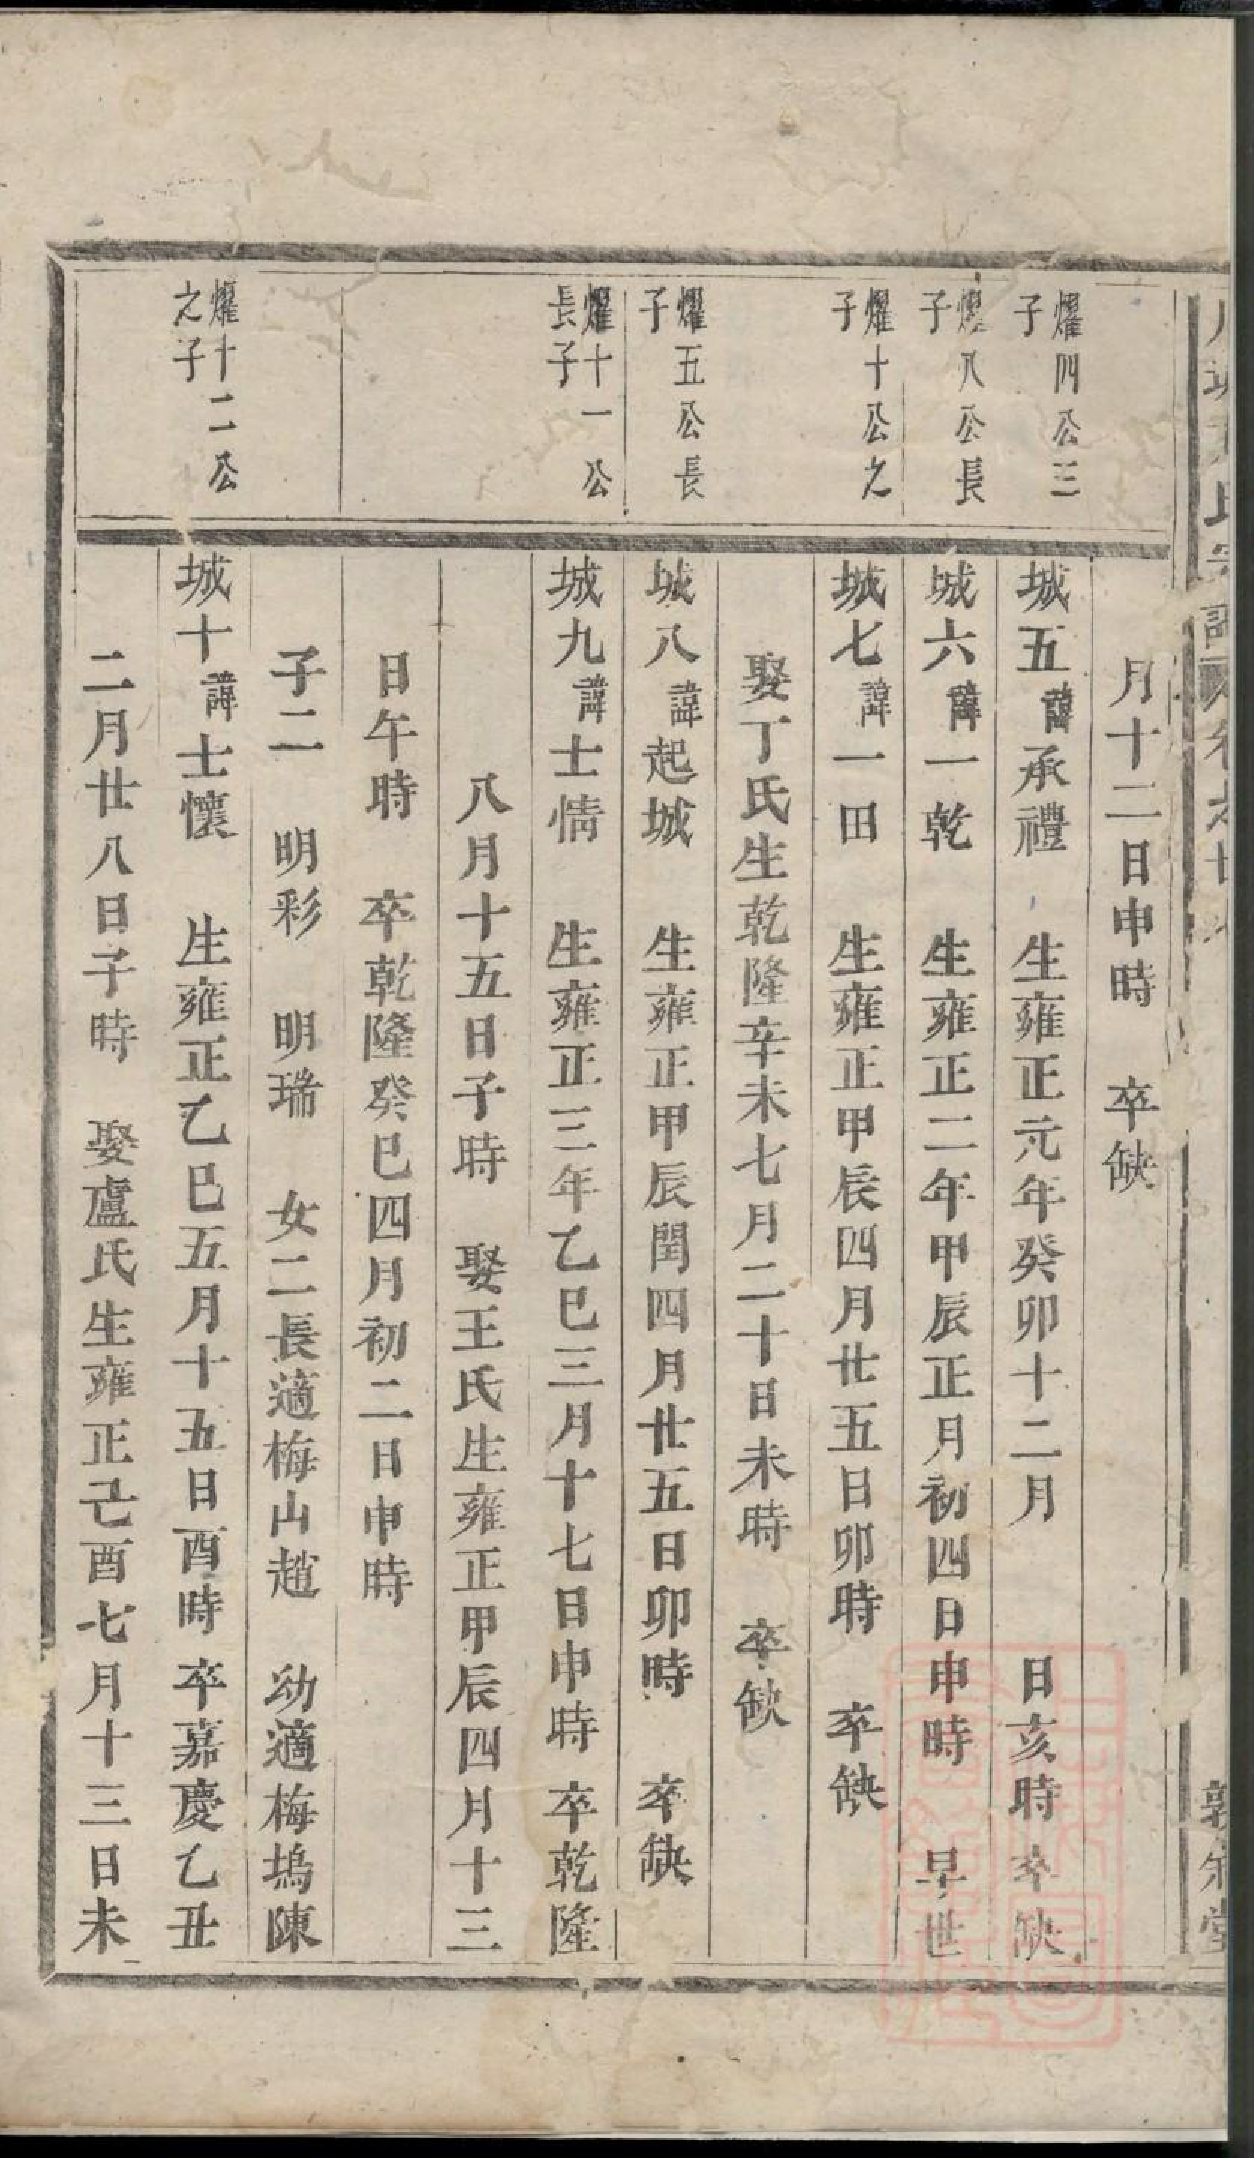 月十二日申時　卒缺
燿四公三
子
城五諱承禮　生雍正元年癸卯十二月　日亥時卒缺
燿八公長
子
城六諱一乾　生雍正二年甲辰正月初四日申時　早世
燿十公之
子
城七諱一田　生雍正甲辰四月廿五日卯時　卒缺
娶丁氏生乾隆辛未七月二十日未時　卒缺
燿五公長
子
城八諱起城　生雍正甲辰閏四月廿五日卯時　卒缺
燿十一公
長子
城九諱士情　生雍正三年乙巳三月十七日申時卒乾隆
八月十五日子時　娶王氏生雍正甲辰四月十三
日午時　卒乾隆癸巳四月初二日申時
子二　明彩　明瑞　女二長適梅山趙　幼適梅塢陳
燿十二公
之子
城十諱士懷　生雍正乙巳五月十五日酉時卒嘉慶乙丑
二月廿八日子時　娶盧氏生雍正己酉七月十三日未